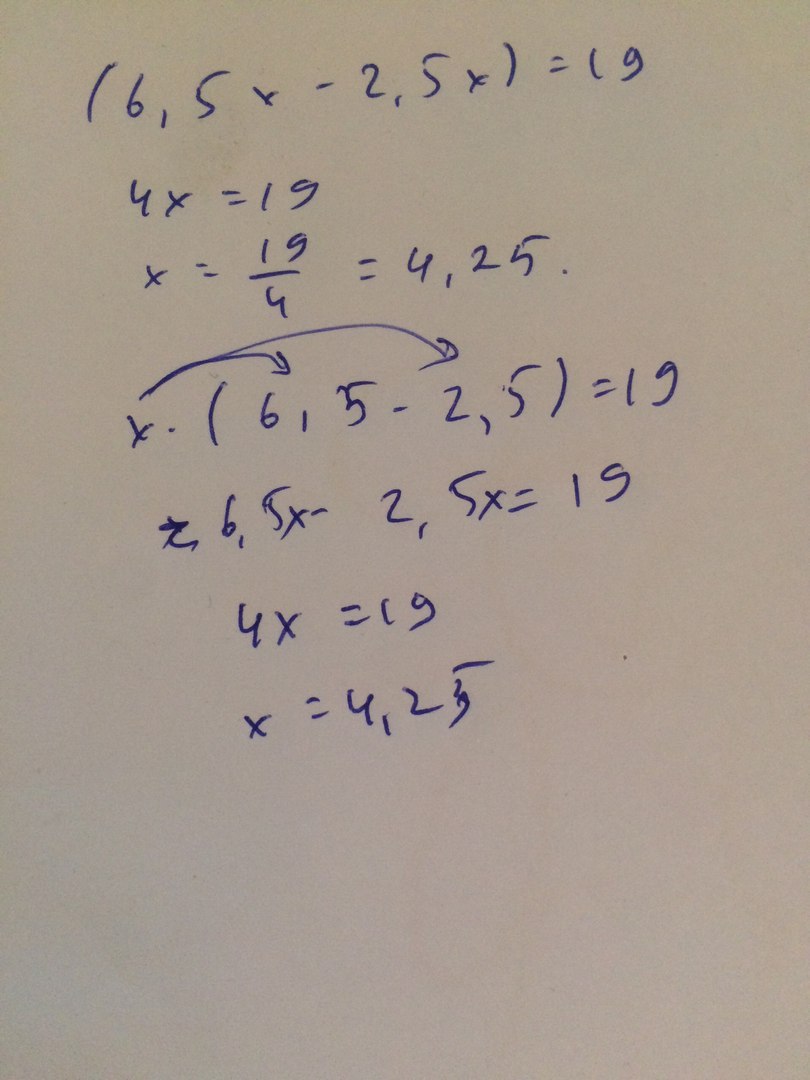 (6,5x - 2,5x) = 19
4x = 19
x = 19/4 = 4,25.
x · (6,5 - 2,5) = 19
6,5x - 2,5x = 19
4x = 19
x = 4,25